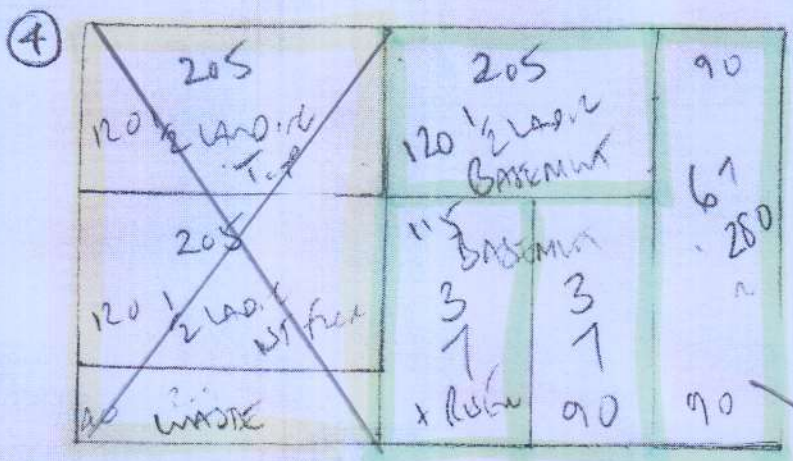 4
205
120 1/2 LANDING
TOP
205
120 1/2 LANDING
1ST FLOOR
90 WASTE
205
120 1/2 LANDING
BASEMENT
115
BASEMENT
3
1
+ RISER
3
1
90
90
61
280
90